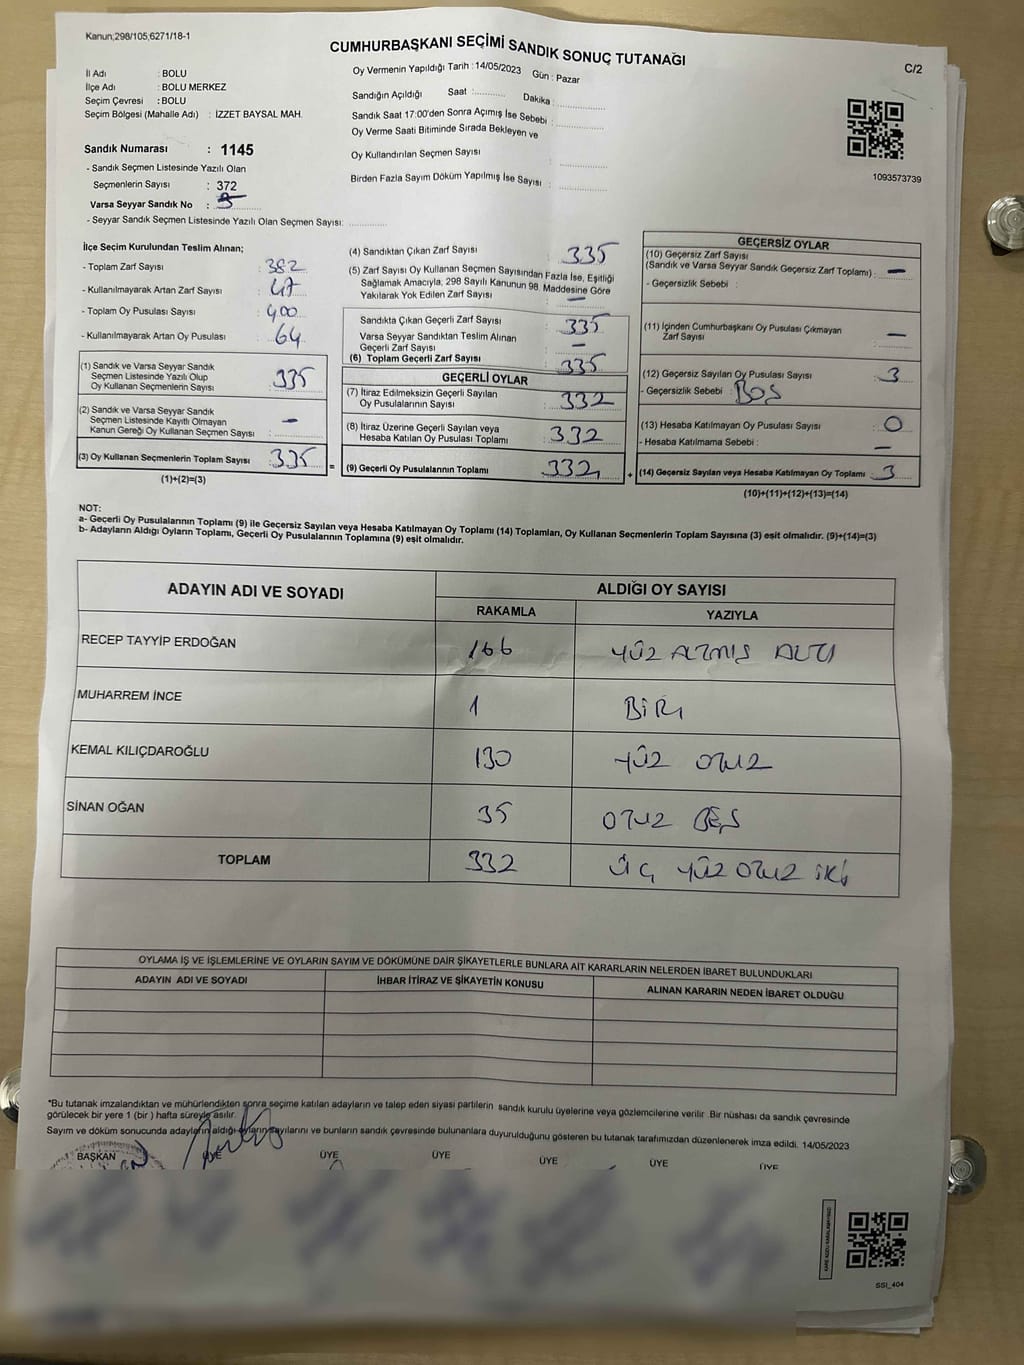 Kanun;298/105;6271/18-1
CUMHURBAŞKANI SEÇİMİ SANDIK SONUÇ TUTANAĞI
C/2
İl Adı : BOLU
İlçe Adı : BOLU MERKEZ
Seçim Çevresi : BOLU
Seçim Bölgesi (Mahalle Adı) : İZZET BAYSAL MAH.
Sandık Numarası : 1145
- Sandık Seçmen Listesinde Yazılı Olan
Seçmenlerin Sayısı : 372
Varsa Seyyar Sandık No :
- Seyyar Sandık Seçmen Listesinde Yazılı Olan Seçmen Sayısı:
Oy Vermenin Yapıldığı Tarih : 14/05/2023 Gün : Pazar
Sandığın Açıldığı Saat : Dakika :
Sandık Saat 17:00'den Sonra Açımış İse Sebebi :
Oy Verme Saati Bitiminde Sırada Bekleyen ve
Oy Kullandırılan Seçmen Sayısı :
Birden Fazla Sayım Döküm Yapılmış İse Sayısı :
1093573739
İlçe Seçim Kurulundan Teslim Alınan;
- Toplam Zarf Sayısı : 382
- Kullanılmayarak Artan Zarf Sayısı : 47
- Toplam Oy Pusulası Sayısı : 400
- Kullanılmayarak Artan Oy Pusulası : 64
(1) Sandık ve Varsa Seyyar Sandık
Seçmen Listesinde Yazılı Olup
Oy Kullanan Seçmenlerin Sayısı : 335
(2) Sandık ve Varsa Seyyar Sandık
Seçmen Listesinde Kayıtlı Olmayan
Kanun Gereği Oy Kullanan Seçmen Sayısı : -
(3) Oy Kullanan Seçmenlerin Toplam Sayısı : 335
(1)+(2)=(3)
(4) Sandıktan Çıkan Zarf Sayısı : 335
(5) Zarf Sayısı Oy Kullanan Seçmen Sayısından Fazla İse, Eşitliği
Sağlamak Amacıyla, 298 Sayılı Kanunun 98. Maddesine Göre
Yakılarak Yok Edilen Zarf Sayısı : -
Sandıkta Çıkan Geçerli Zarf Sayısı : 335
Varsa Seyyar Sandıktan Teslim Alınan
Geçerli Zarf Sayısı : -
(6) Toplam Geçerli Zarf Sayısı : 335
GEÇERLİ OYLAR
(7) İtiraz Edilmeksizin Geçerli Sayılan
Oy Pusulalarının Sayısı : 332
(8) İtiraz Üzerine Geçerli Sayılan veya
Hesaba Katılan Oy Pusulası Toplamı : 332
(9) Geçerli Oy Pusulalarının Toplamı : 332
=
+
GEÇERSİZ OYLAR
(10) Geçersiz Zarf Sayısı
(Sandık ve Varsa Seyyar Sandık Geçersiz Zarf Toplamı) : -
- Geçersizlik Sebebi :
(11) İçinden Cumhurbaşkanı Oy Pusulası Çıkmayan
Zarf Sayısı : -
(12) Geçersiz Sayılan Oy Pusulası Sayısı : 3
- Geçersizlik Sebebi : BOŞ
(13) Hesaba Katılmayan Oy Pusulası Sayısı : 0
- Hesaba Katılmama Sebebi : -
(14) Geçersiz Sayılan veya Hesaba Katılmayan Oy Toplamı : 3
(10)+(11)+(12)+(13)=(14)
NOT:
a- Geçerli Oy Pusulalarının Toplamı (9) ile Geçersiz Sayılan veya Hesaba Katılmayan Oy Toplamı (14) Toplamları, Oy Kullanan Seçmenlerin Toplam Sayısına (3) eşit olmalıdır. (9)+(14)=(3)
b- Adayların Aldığı Oyların Toplamı, Geçerli Oy Pusulalarının Toplamına (9) eşit olmalıdır.
ADAYIN ADI VE SOYADI
ALDIĞI OY SAYISI
RAKAMLA YAZIYLA
RECEP TAYYİP ERDOĞAN 166 YÜZ ALTMIŞ ALTI
MUHARREM İNCE 1 BİR
KEMAL KILIÇDAROĞLU 130 YÜZ OTUZ
SİNAN OĞAN 35 OTUZ BEŞ
TOPLAM 332 ÜÇ YÜZ OTUZ İKİ
OYLAMA İŞ VE İŞLEMLERİNE VE OYLARIN SAYIM VE DÖKÜMÜNE DAİR ŞİKAYETLERLE BUNLARA AİT KARARLARIN NELERDEN İBARET BULUNDUKLARI
ADAYIN ADI VE SOYADI İHBAR İTİRAZ VE ŞİKAYETİN KONUSU ALINAN KARARIN NEDEN İBARET OLDUĞU
*Bu tutanak imzalandıktan ve mühürlendikten sonra seçime katılan adayların ve talep eden siyasi partilerin sandık kurulu üyelerine veya gözlemcilerine verilir. Bir nüshası da sandık çevresinde
görülecek bir yere 1 (bir ) hafta süreyle asılır.
Sayım ve döküm sonucunda adayların aldığı oyların sayılarını ve bunların sandık çevresinde bulunanlara duyurulduğunu gösteren bu tutanak tarafımızdan düzenlenerek imza edildi. 14/05/2023
BAŞKAN ÜYE ÜYE ÜYE ÜYE ÜYE ÜYE
SSİ_404